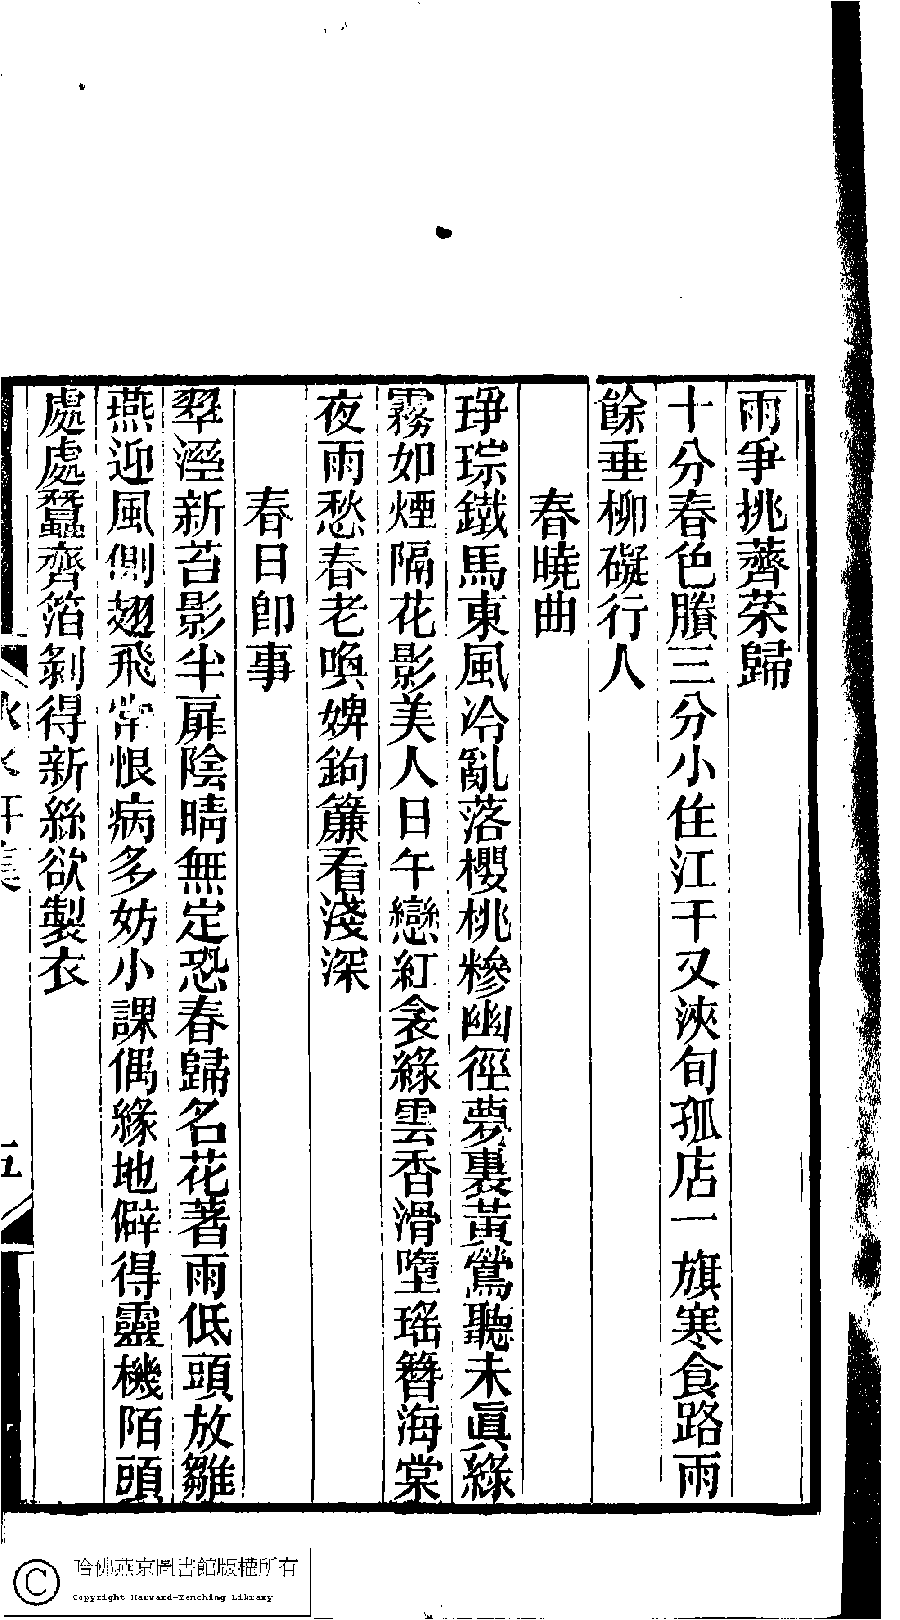 雨爭挑薺菜歸
十分春色賸三分小住江干又浹旬孤店一旗寒食路雨
餘垂柳礙行人
春曉曲
琤琮鐵馬東風冷亂落櫻桃糝幽徑夢裏黃鶯聽未眞綠
霧如煙隔花影美人日午戀紅衾綠雲香滑墮瑤簪海棠
夜雨愁春老喚婢鉤簾看淺深
春日卽事
翠溼新苔影半扉陰晴無定恐春歸名花著雨低頭放雛
燕迎風側翅飛常恨病多妨小課偶緣地僻得靈機陌頭
處處蠶齊箔剝得新絲欲製衣
五
哈佛燕京圖書館版權所有
Copyright Harvard-Yenching Library